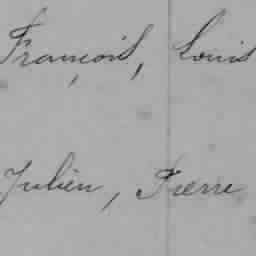 François, Louis
Julien, Pierre